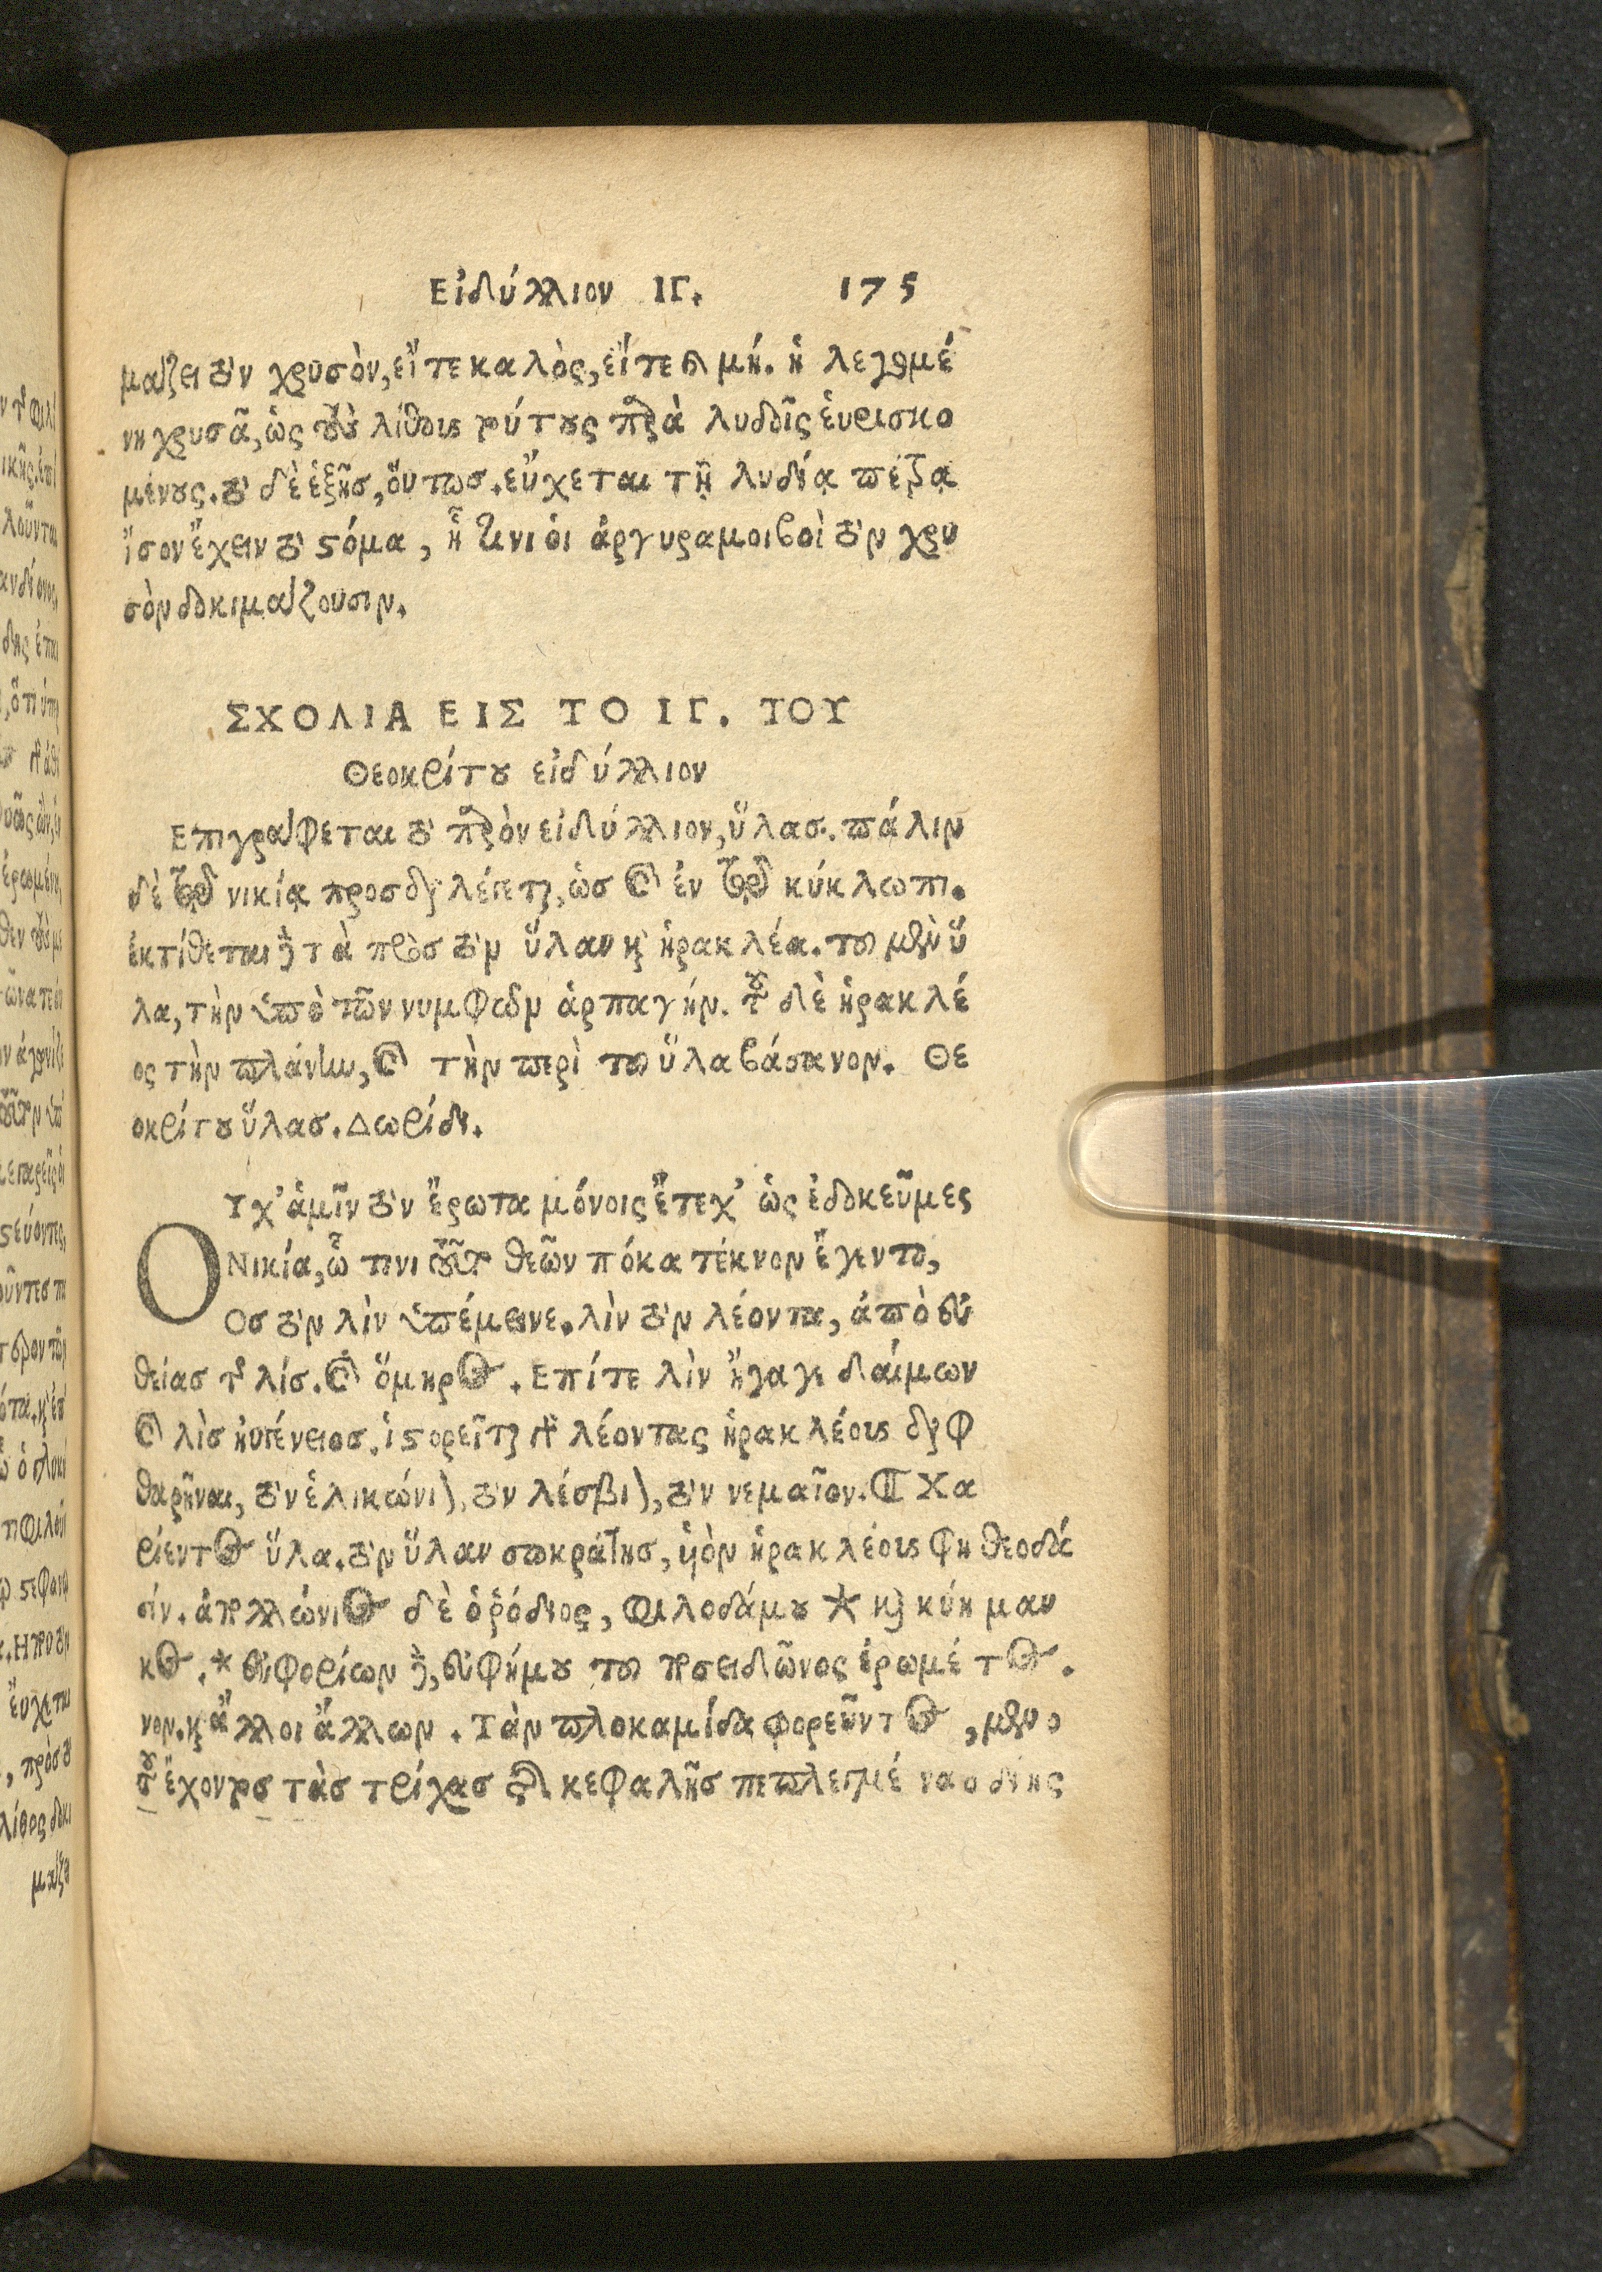 Εἰδύλλιον ΙΓ. 175
μάζει τὸν χρυσὸν, εἴτε καλὸς, εἴτε καὶ μή. ἡ λεγομέ
νη χρυσᾶ, ὡς τοὺς λίθους τούτους παρὰ λυδοῖς εὑρισκο
μένους. τὸ δὲ ἑξῆσ, οὕτωσ. εὔχεται τῇ λυδίᾳ πέτρᾳ
ἴσον ἔχειν τὸ στόμα, ᾗ τινι οἱ ἀργυραμοιβοὶ τὸν χρυ
σὸν δοκιμάζουσιν.
ΣΧΟΛΙΑ ΕΙΣ ΤΟ ΙΓ. ΤΟΥ
Θεοκρίτου εἰδύλλιον
Επιγράφεται τὸ παρὸν εἰδύλλιον, ὕλασ. πάλιν
δὲ τῷ νικίᾳ προσδιαλέγεται, ὡσ καὶ ἐν τῷ κύκλωπι.
ἐκτίθεται δὲ τὰ πρὸσ τὸν ὕλαν καὶ ἡρακλέα. τοῦ μὲν ὕ
λα, τὴν ὑπὸ τῶν νυμφῶν ἁρπαγήν. τοῦ δὲ ἡρακλέ
ος τὴν πλάνην, καὶ τὴν περὶ τοῦ ὕλα βάσανον. Θε
οκρίτου ὕλασ. Δωρίδι.
Ο Υχ' ἁμῖν τὸν ἔρωτα μόνοις ἔτεχ' ὡς ἐδοκεῦμες
Νικία, ᾧ τινι τοῦτο θεῶν πόκα τέκνον ἔγεντο,
Οσ τὸν λὶν ὑπέμεινε. λὶν τὸν λέοντα, ἀπὸ εὐ
θείασ τῆς λίσ. καὶ ὅμηρος. Επί τε λὶν ἤγαγε δαίμων
καὶ λὶσ ἠυγένειοσ. ἱστορεῖται τρεῖς λέοντας ἡρακλέους διαφ
θαρῆναι, τὸν ἑλικώνιον, τὸν λέσβιον, τὸν νεμαῖον. ¶ Χα
ρίεντος ὕλα. τὸν ὕλαν σωκράτησ, υἱὸν ἡρακλέους φη θεοδά
σίν. ἀπολλώνιος δὲ ὁ ῥόδιος, φιλοδάμου * καὶ κύη μαν
κος. * εὐφορίων δὲ, εὐφήμου τοῦ ποσειδῶνος ἐρωμέ τος.
νον. καὶ ἄλλοι ἄλλων. Τὰν πλοκαμίδα φορεῦντος, μὲν ο
τοῦ ἔχοντος τὰσ τρίχασ τῆς κεφαλῆσ πεπλεγμέ νασ δινης